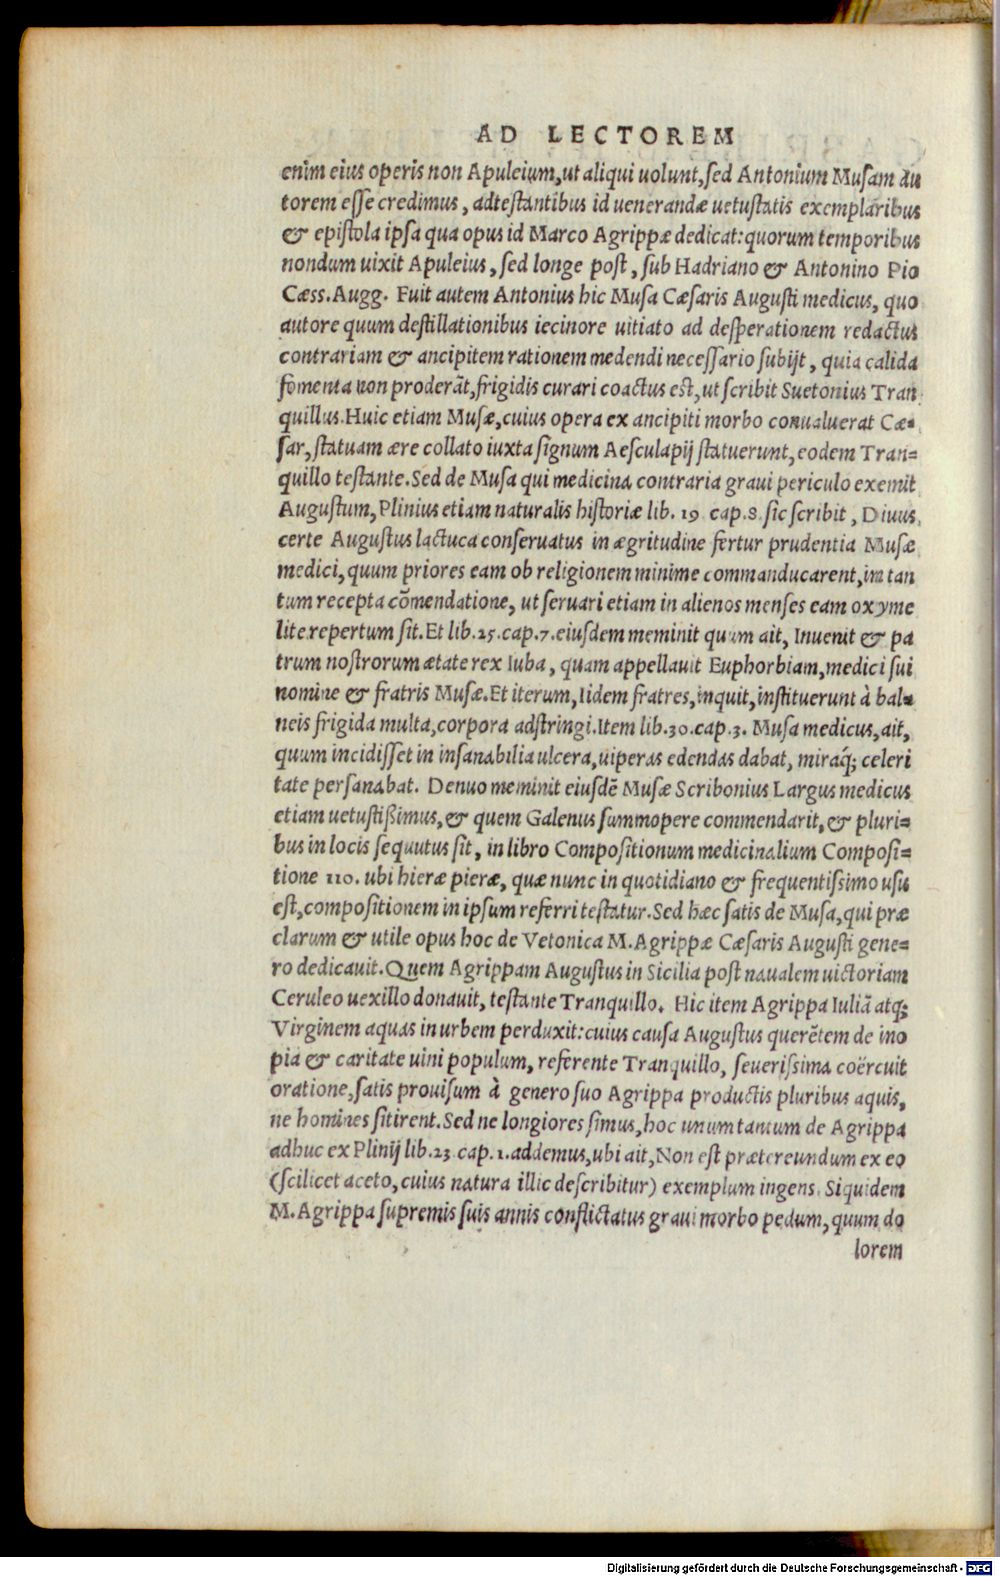 AD LECTOREM
enim eius operis non Apuleium, ut aliqui uolunt, sed Antonium Musam au
torem esse credimus, adtestantibus id uenerandæ uetustatis exemplaribus
& epistola ipsa qua opus id Marco Agrippæ dedicat: quorum temporibus
nondum uixit Apuleius, sed longe post, sub Hadriano & Antonino Pio
Cæss. Augg. Fuit autem Antonius hic Musa Cæsaris Augusti medicus, quo
autore quum destillationibus iecinore uitiato ad desperationem redactus
contrariam & ancipitem rationem medendi necessario subijt, quia calida
fomenta non proderāt, frigidis curari coactus est, ut scribit Suetonius Tran
quillus. Huic etiam Musæ, cuius opera ex ancipiti morbo conualuerat Cæ=
sar, statuam ære collato iuxta signum Aesculapij statuerunt, eodem Tran=
quillo testante. Sed de Musa qui medicina contraria graui periculo exemit
Augustum, Plinius etiam naturalis historiæ lib. 19 cap. 8. sic scribit, Diuus
certe Augustus lactuca conseruatus in ægritudine fertur prudentia Musæ
medici, quum priores eam ob religionem minime commanducarent, in tan
tum recepta cōmendatione, ut seruari etiam in alienos menses eam oxyme
lite repertum sit. Et lib. 25. cap. 7. eiusdem meminit quum ait, Inuenit & pa
trum nostrorum ætate rex Iuba, quam appellauit Euphorbiam, medici sui
nomine & fratris Musæ. Et iterum, Iidem fratres, inquit, instituerunt à bal=
neis frigida multa, corpora adstringi. Item lib. 30. cap. 3. Musa medicus, ait,
quum incidisset in insanabilia ulcera, uiperas edendas dabat, miraq́; celeri
tate persanabat. Denuo meminit eiusdē Musæ Scribonius Largus medicus
etiam uetustißimus, & quem Galenus summopere commendarit, & pluri=
bus in locis sequutus sit, in libro Compositionum medicinalium Composi=
tione 110. ubi hieræ pieræ, quæ nunc in quotidiano & frequentissimo usu
est, compositionem in ipsum referri testatur. Sed hæc satis de Musa, qui præ
clarum & utile opus hoc de Vetonica M. Agrippæ Cæsaris Augusti gene=
ro dedicauit. Quem Agrippam Augustus in Sicilia post naualem uictoriam
Ceruleo uexillo donauit, testante Tranquillo. Hic item Agrippa Iuliā atq;
Virginem aquas in urbem perduxit: cuius causa Augustus querētem de ino
pia & caritate uini populum, referente Tranquillo, seuerissima coërcuit
oratione, satis prouisum à genero suo Agrippa productis pluribus aquis,
ne homines sitirent. Sed ne longiores simus, hoc unum tantum de Agrippa
adhuc ex Plinij lib. 23 cap. 1. addemus, ubi ait, Non est prætereundum ex eo
(scilicet aceto, cuius natura illic describitur) exemplum ingens. Siquidem
M. Agrippa supremis suis annis conflictatus graui morbo pedum, quum do
lorem
Digitalisierung gefördert durch die Deutsche Forschungsgemeinschaft - DFG